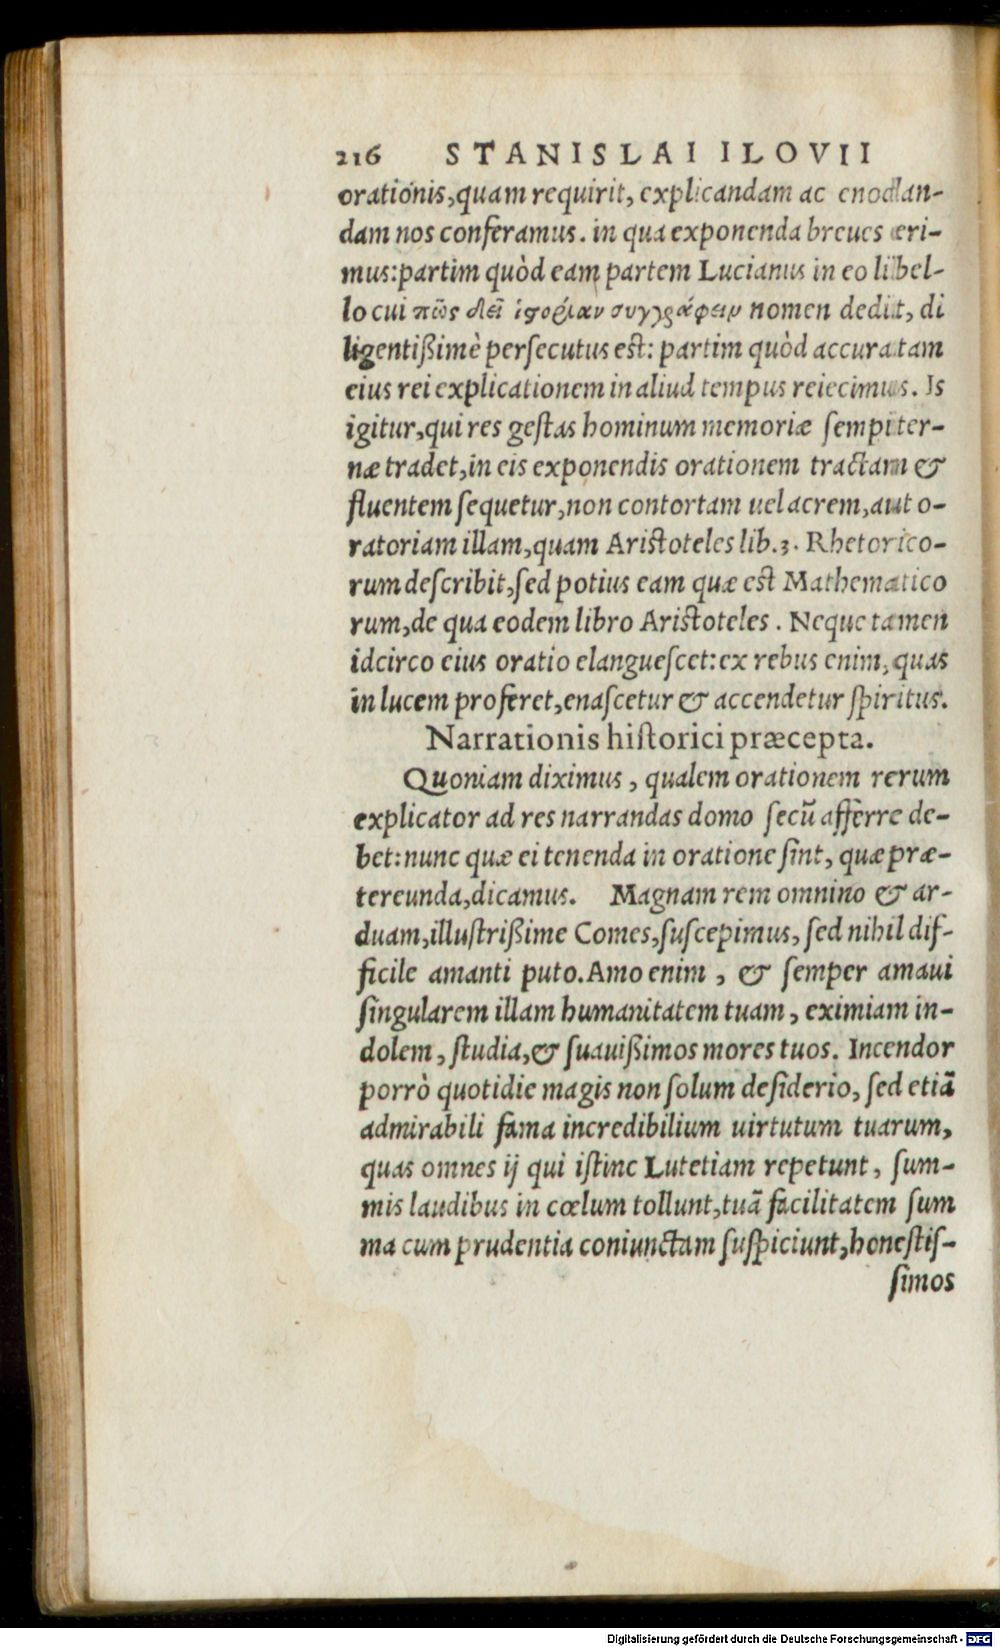 216 STANISLAI ILOVII
orationis, quam requirit, explicandam ac enodan-
dam nos conferamus. in qua exponenda breues eri-
mus: partim quòd eam partem Lucianus in eo libel-
lo cui πῶς δεῖ ἱστορίαν συγγράφειν nomen dedit, di
ligentißimè persecutus est: partim quòd accuratam
eius rei explicationem in aliud tempus reiecimus. Is
igitur, qui res gestas hominum memoriæ sempiter-
næ tradet, in eis exponendis orationem tractam &
fluentem sequetur, non contortam uel acrem, aut o-
ratoriam illam, quam Aristoteles lib. 3. Rhetorico-
rum describit, sed potius eam quæ est Mathematico
rum, de qua eodem libro Aristoteles. Neque tamen
idcirco eius oratio elanguescet: ex rebus enim, quas
in lucem proferet, enascetur & accendetur spiritus.
Narrationis historici præcepta.
Quoniam diximus, qualem orationem rerum
explicator ad res narrandas domo secū afferre de-
bet: nunc quæ ei tenenda in oratione sint, quæ præ-
tereunda, dicamus. Magnam rem omnino & ar-
duam, illustrißime Comes, suscepimus, sed nihil dif-
ficile amanti puto. Amo enim, & semper amaui
singularem illam humanitatem tuam, eximiam in-
dolem, studia, & suauißimos mores tuos. Incendor
porrò quotidie magis non solum desiderio, sed etiā
admirabili fama incredibilium uirtutum tuarum,
quas omnes ij qui istinc Lutetiam repetunt, sum-
mis laudibus in cœlum tollunt, tuā facilitatem sum
ma cum prudentia coniunctam suspiciunt, honestis-
simos
Digitalisierung gefördert durch die Deutsche Forschungsgemeinschaft - DFG